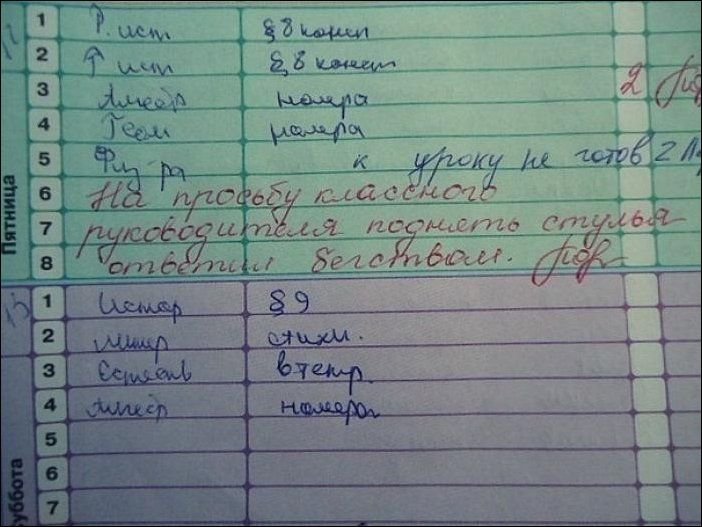 1 Р. ист §8 консп
2 Р ист §8 консп
3 Алгебр номера 2
4 Геом номера
5 Физ-ра к уроку не готов 2
6 На просьбу классного
7 руководителя поднять стулья
8 ответил бегством.
Пятница
1 Истор §9
2 Литер стихи.
3 Естеств в тетр.
4 Алгебр номера
5
6
7
суббота